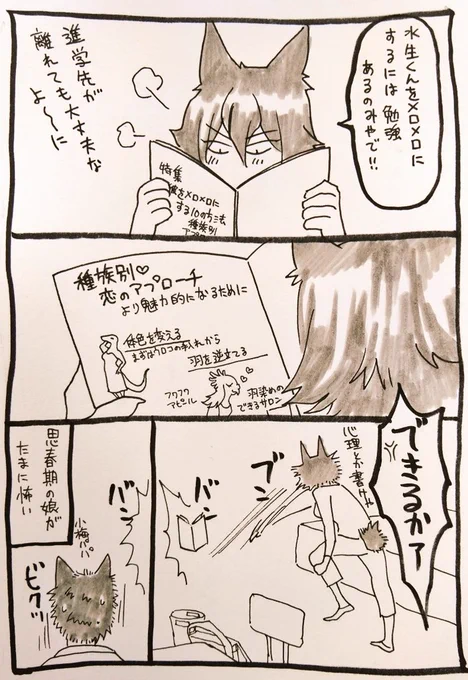 水生くんをメロメロに
するには 勉強
あるのみやで!!
進学先が
離れても大丈夫な
よ〜に
特集
彼をメロメロに
する10の方法
種族別
アプロー
種族別♡
恋のアプローチ
より魅力的になるために
体色を変える
まずはウロコの手入れから
羽を逆立てる
フワフワ
アピール
羽染めの
できるサロン
できるかァ
心理とか書けや
ブン
バン
バン
思春期の娘が
たまに怖い
小梅パパ
ビクッ